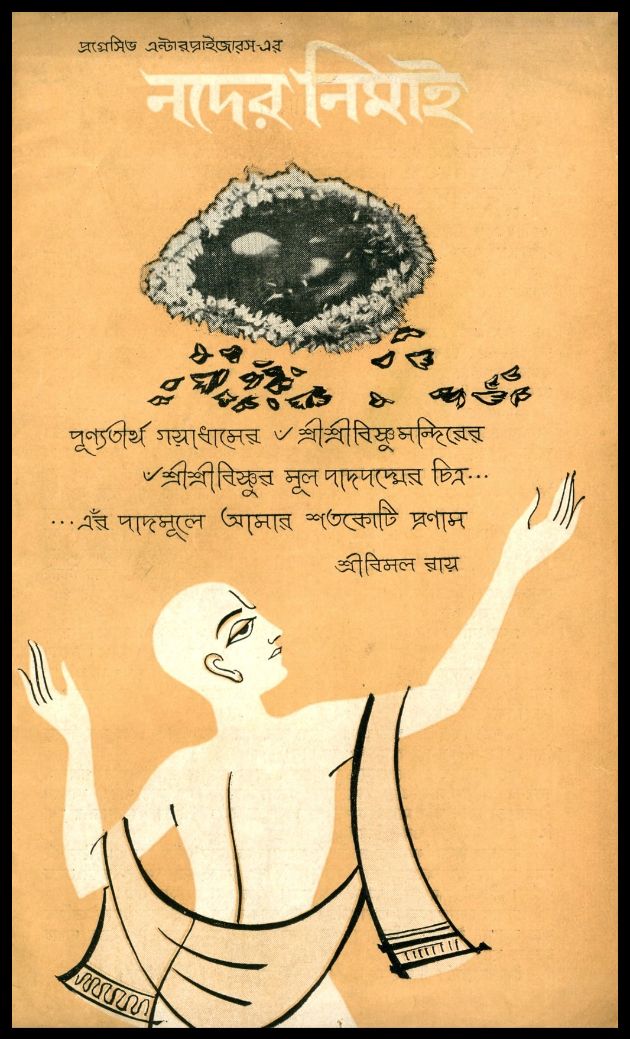 প্রগ্রেসিভ এন্টারপ্রাইজারস-এর
নদের নিমাই
পূণ্যতীর্থ গয়াধামের ৺শ্রীশ্রীবিষ্ণুমন্দিরের
৺শ্রীশ্রীবিষ্ণুর মূল পাদপদ্মের চিত্র...
...এঁর পাদমূলে আমার শতকোটি প্রণাম
শ্রীবিমল রায়